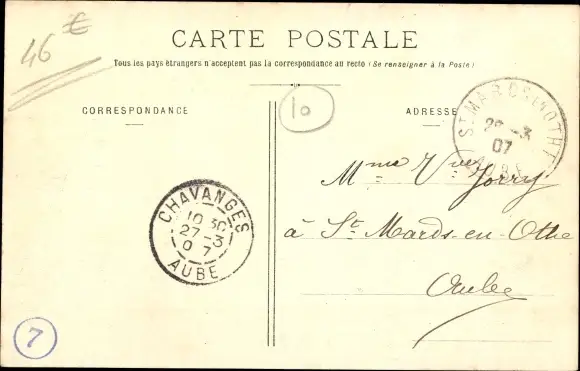 46 €
CARTE POSTALE
Tous les pays étrangers n'acceptent pas la correspondance au recto (Se renseigner à la Poste)
10
CORRESPONDANCE
ADRESSE
ST MARDS EN OTHE
28 -3
07
AUBE
Mme Vve Jorry
à St Mards-en-Othe
Aube
CHAVANGES
10 30
27 -3
0 7
AUBE
7